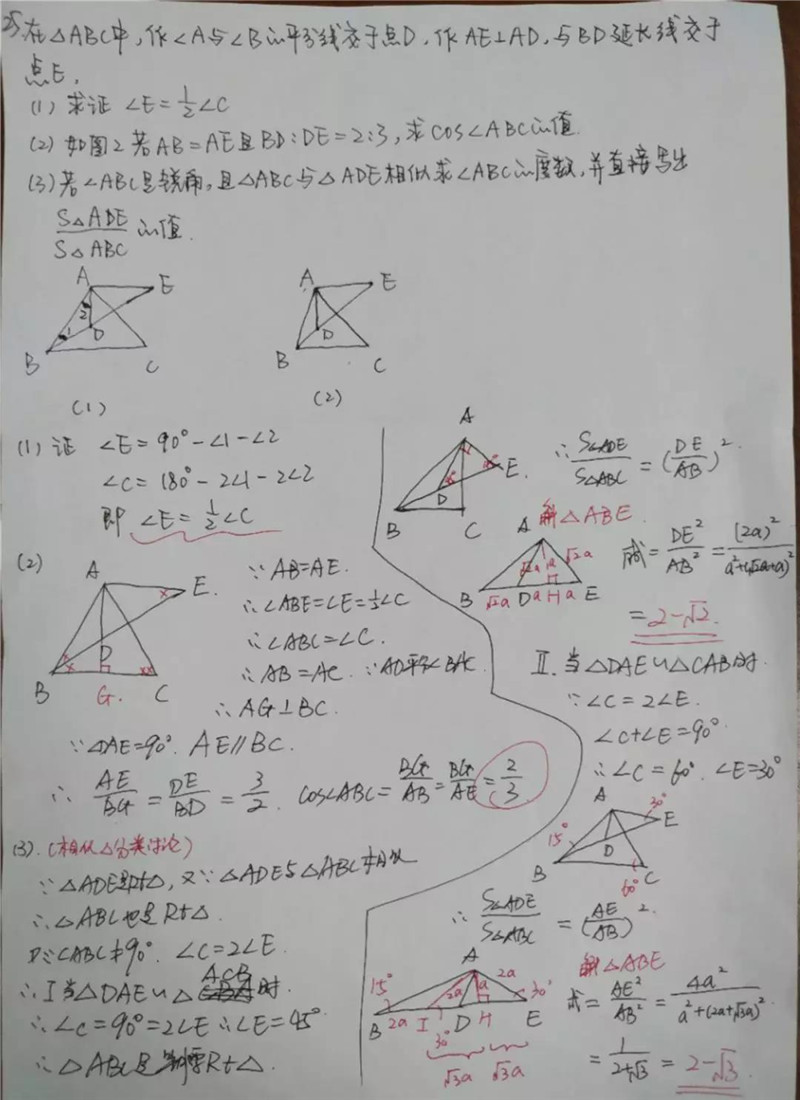 25 在△ABC中,作∠A与∠B的平分线交于点D,作AE⊥AD,与BD延长线交于
点E,
(1) 求证 ∠E=½∠C
(2) 如图2若AB=AE且BD:DE=2:3,求cos∠ABC的值.
(3)若∠ABC是锐角,且△ABC与△ADE相似求∠ABC的度数,并直接写出
S△ADE/S△ABC 的值.
A E
2
D
1
B C
(1)
A E
D
B C
(2)
(1) 证 ∠E=90°-∠1-∠2
∠C=180°-2∠1-2∠2
即 ∠E=½∠C
(2)
A E.
D
B G. C
× × × ××
∵AB=AE.
∴∠ABE=∠E=½∠C
∴∠ABC=∠C.
∴AB=AC. ∵AD平分∠BAC
∴AG⊥BC.
∵∠DAE=90°. AE∥BC.
∴ AE/BG = DE/BD = 3/2. cos∠ABC= BG/AB = BG/AE = 2/3
(3).(相似△分类讨论)
∵△ADE是Rt△,又∵△ADE与△ABC相似
∴△ABC也是Rt△.
∵∠ABC≠90°. ∠C=2∠E.
∴I当△DAE∽△ACB时.
∴∠C=90°=2∠E ∴∠E=45°
∴△ABC是等腰Rt△.
A
E.
D
B C
∴ S△ADE/S△ABC = (DE/AB)².
解△ABE.
A
√2a a √2a
B √2a D a H a E
式= DE²/AB² = (2a)²/a²+(√2a+a)²
=2-√2.
Ⅱ.当△DAE∽△CAB时.
∵∠C=2∠E.
∠C+∠E=90°
∴∠C=60°. ∠E=30°
A 30° E
15° D
B C
60°
∴ S△ADE/S△ABC = (AE/AB)².
解△ABE
A
15° 2a a 2a 30°
B 2a I D H E
30°
√3a √3a
式= AE²/AB² = 4a²/a²+(2a+√3a)²
= 1/2+√3 = 2-√3